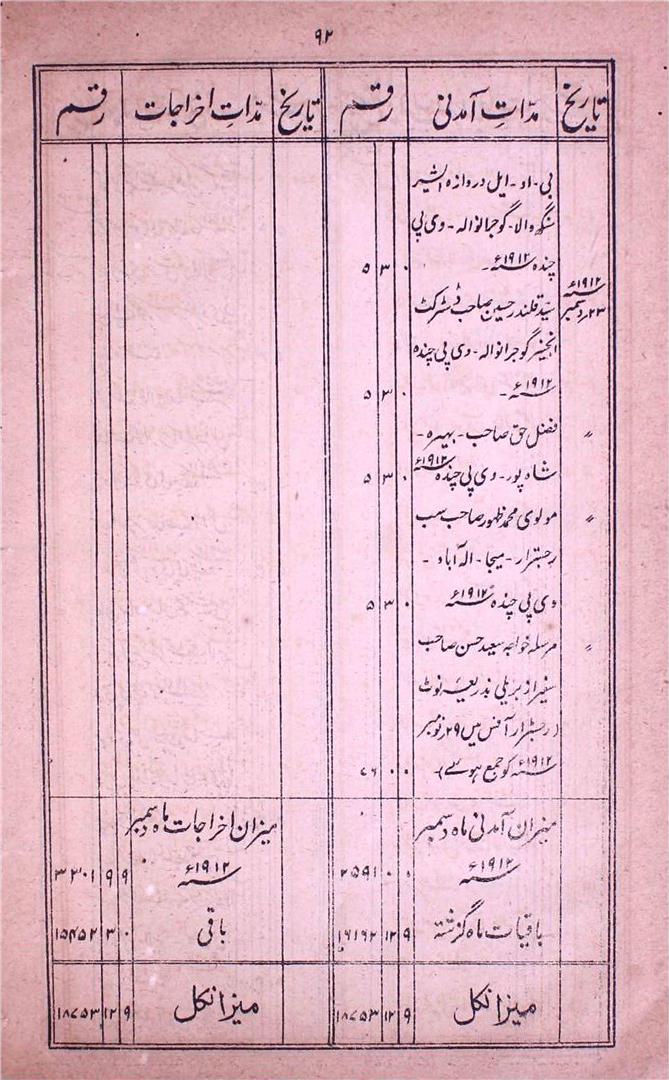 ۹۲
تاریخ مدّاتِ آمدنی رقم تاریخ مدّاتِ اخراجات رقم
بی۔ او۔ ایل دروازہ
سنگھ والا۔ گوجرانوالہ۔ وی پی
چندہ ۱۹۱۲ء۔ ۵ ۳ ۰
۱۹۱۲ء
۲۳ دسمبر سید قلندر حسین صاحب ڈسٹرکٹ
انجنیئر گوجرانوالہ۔ وی پی چندہ
۱۹۱۲ء۔ ۵ ۳ ۰
〃 فضل حق صاحب۔ بھیرہ۔
شاہ پور۔ وی پی چندہ ۱۹۱۲ء ۵ ۳ ۰
〃 مولوی محمد ظہور صاحب سب
رجسٹرار۔ میجا۔ الہ آباد۔
وی پی چندہ ۱۹۱۲ء ۵ ۳ ۰
〃 مرسلہ خواجہ سعید حسن صاحب
سفیر از بریلی بذریعہ نوٹ
(رجسٹرار آفس میں ۲۹ نومبر
۱۹۱۲ء کو جمع ہوئے)۔ ۷۶ ۰ ۰
میزان آمدنی ماہ دسمبر
۱۹۱۲ء ۲۵۹۱ ۰ ۰
میزان اخراجات ماہ دسمبر
۱۹۱۲ء ۳۳۰۱ ۹ ۹
باقیات ماہ گزشتہ ۱۶۱۶۲ ۱۲ ۹
باقی ۱۵۴۵۲ ۳ ۰
میزان کل ۱۸۷۵۳ ۱۲ ۹
میزان کل ۱۸۷۵۳ ۱۲ ۹